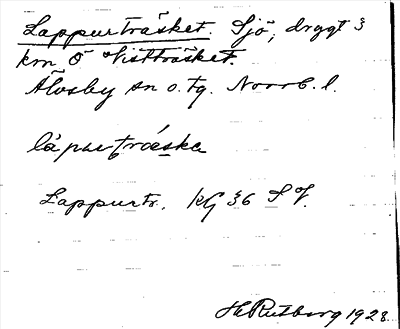 Lappurträsket. Sjö, drygt 3
km Ö Vistträsket.
Älvsby sn o. tg. Norrb. l.
Lappurtr. KG 36 S V.
H. Rutberg 1928